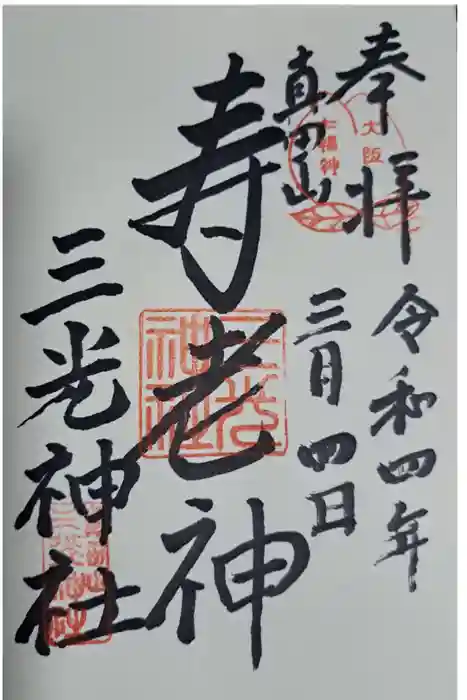 奉拝
令和四年
三月四日
真田山
大阪
七福神
寿老神
三光神社
三光神社